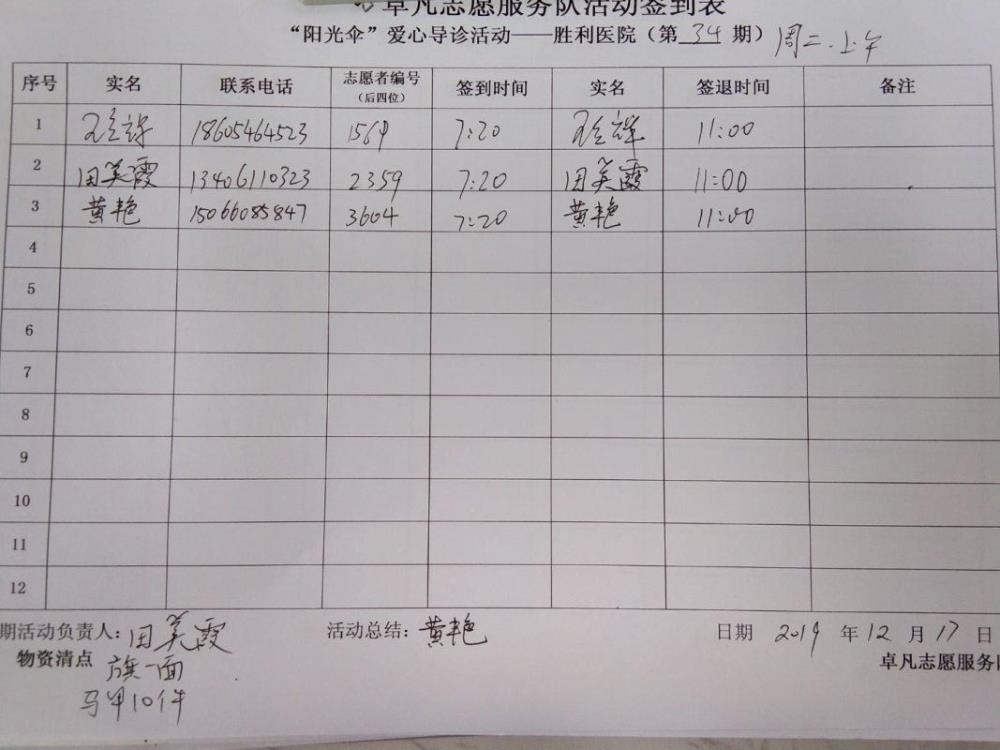 卓凡志愿服务队活动签到表
“阳光伞”爱心导诊活动——胜利医院（第 34 期） 周二.上午
序号 实名 联系电话 志愿者编号（后四位） 签到时间 实名 签退时间 备注
1 18605464523 1569 7:20 11:00
2 田美霞 13406110323 2359 7:20 田美霞 11:00
3 黄艳 15066085847 3604 7:20 黄艳 11:00
4
5
6
7
8
9
10
11
12
期活动负责人：田美霞 活动总结：黄艳 日期 2019 年 12 月 17 日
物资清点 旗一面 卓凡志愿服务队
马甲10件